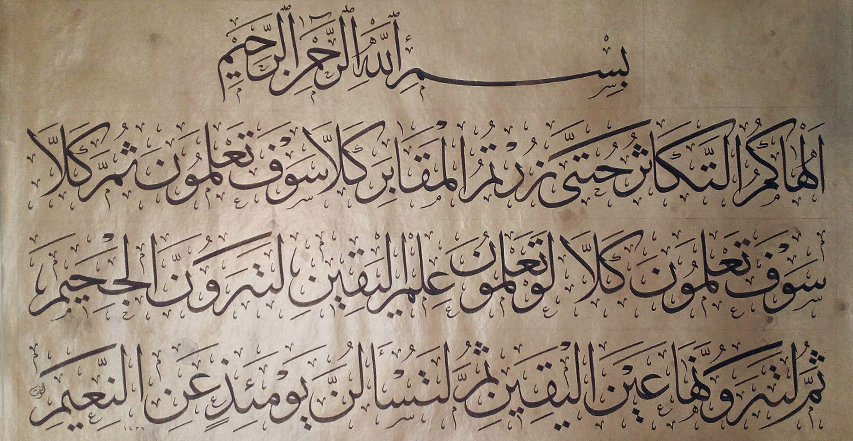 بِسْمِ اللهِ الرَّحْمٰنِ الرَّحِيْمِ
اَلْهَاكُمُ التَّكَاثُرُ حَتّٰى زُرْتُمُ الْمَقَابِرَ كَلَّا سَوْفَ تَعْلَمُوْنَ ثُمَّ كَلَّا
سَوْفَ تَعْلَمُوْنَ كَلَّا لَوْ تَعْلَمُوْنَ عِلْمَ الْيَقِيْنِ لَتَرَوُنَّ الْجَحِيْمَ
ثُمَّ لَتَرَوُنَّهَا عَيْنَ الْيَقِيْنِ ثُمَّ لَتُسْأَلُنَّ يَوْمَئِذٍ عَنِ النَّعِيْمِ